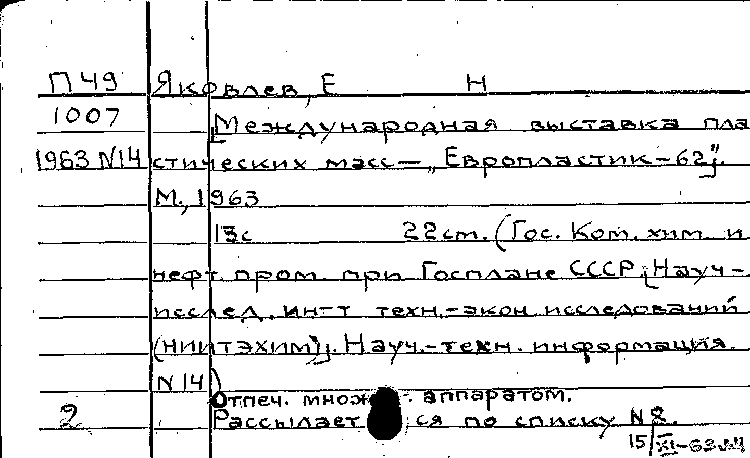 П 49 Яковлев, Е Н
1007 [Международная выставка пла
1963 N14 стических масс — „Европластик-62"].
М., 1963
13с 22 ст. (Гос. Ком. хим. и
нефт. пром. при Госплане СССР. [Науч-
исслед. ин-т техн.-экон. исследований
(НИИТЭХИМ)]. Науч.-техн. информация.
N 14)
Отпеч. множ . аппаратом.
2 Рассылает ся по списку N 2.
15/XI-63